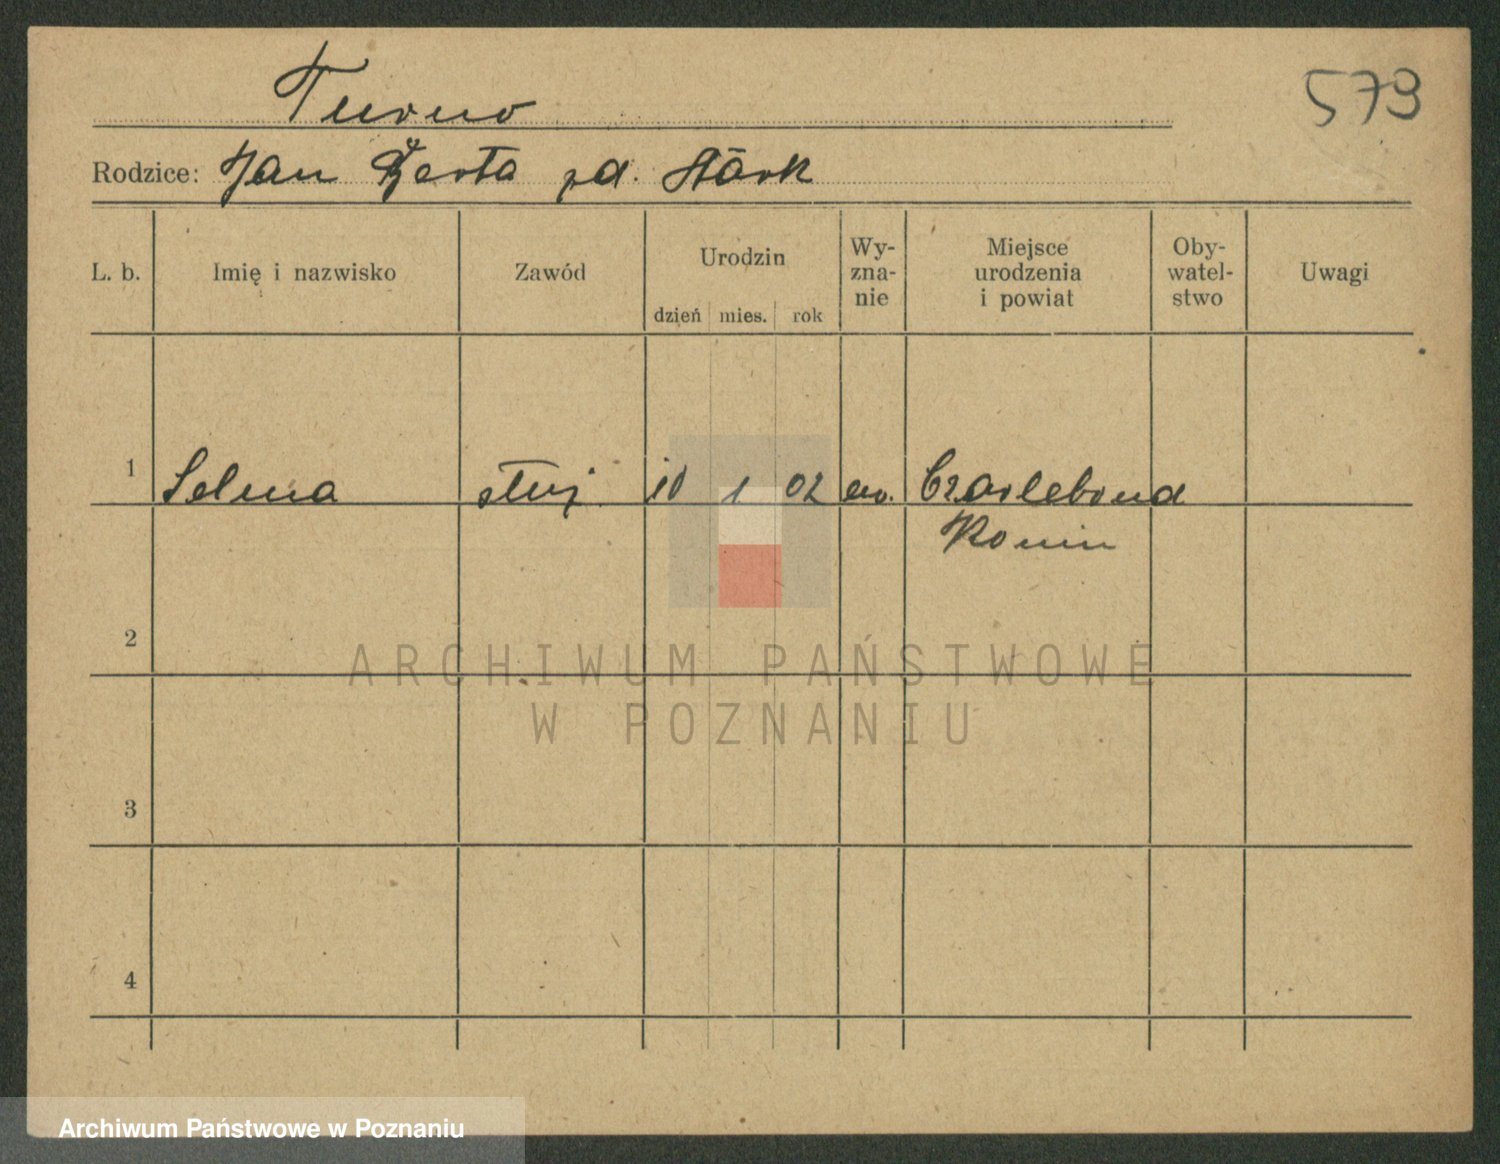 579
Turno
Rodzice: Jan Berta zd. Stärk
L. b. Imię i nazwisko Zawód Urodzin dzień mies. rok Wy-zna-nie Miejsce urodzenia i powiat Oby-watel-stwo Uwagi
1 Selma służ. 10 1 02 ew.
Konin
2
ARCHIWUM PAŃSTWOWE
W POZNANIU
3
4
Archiwum Państwowe w Poznaniu